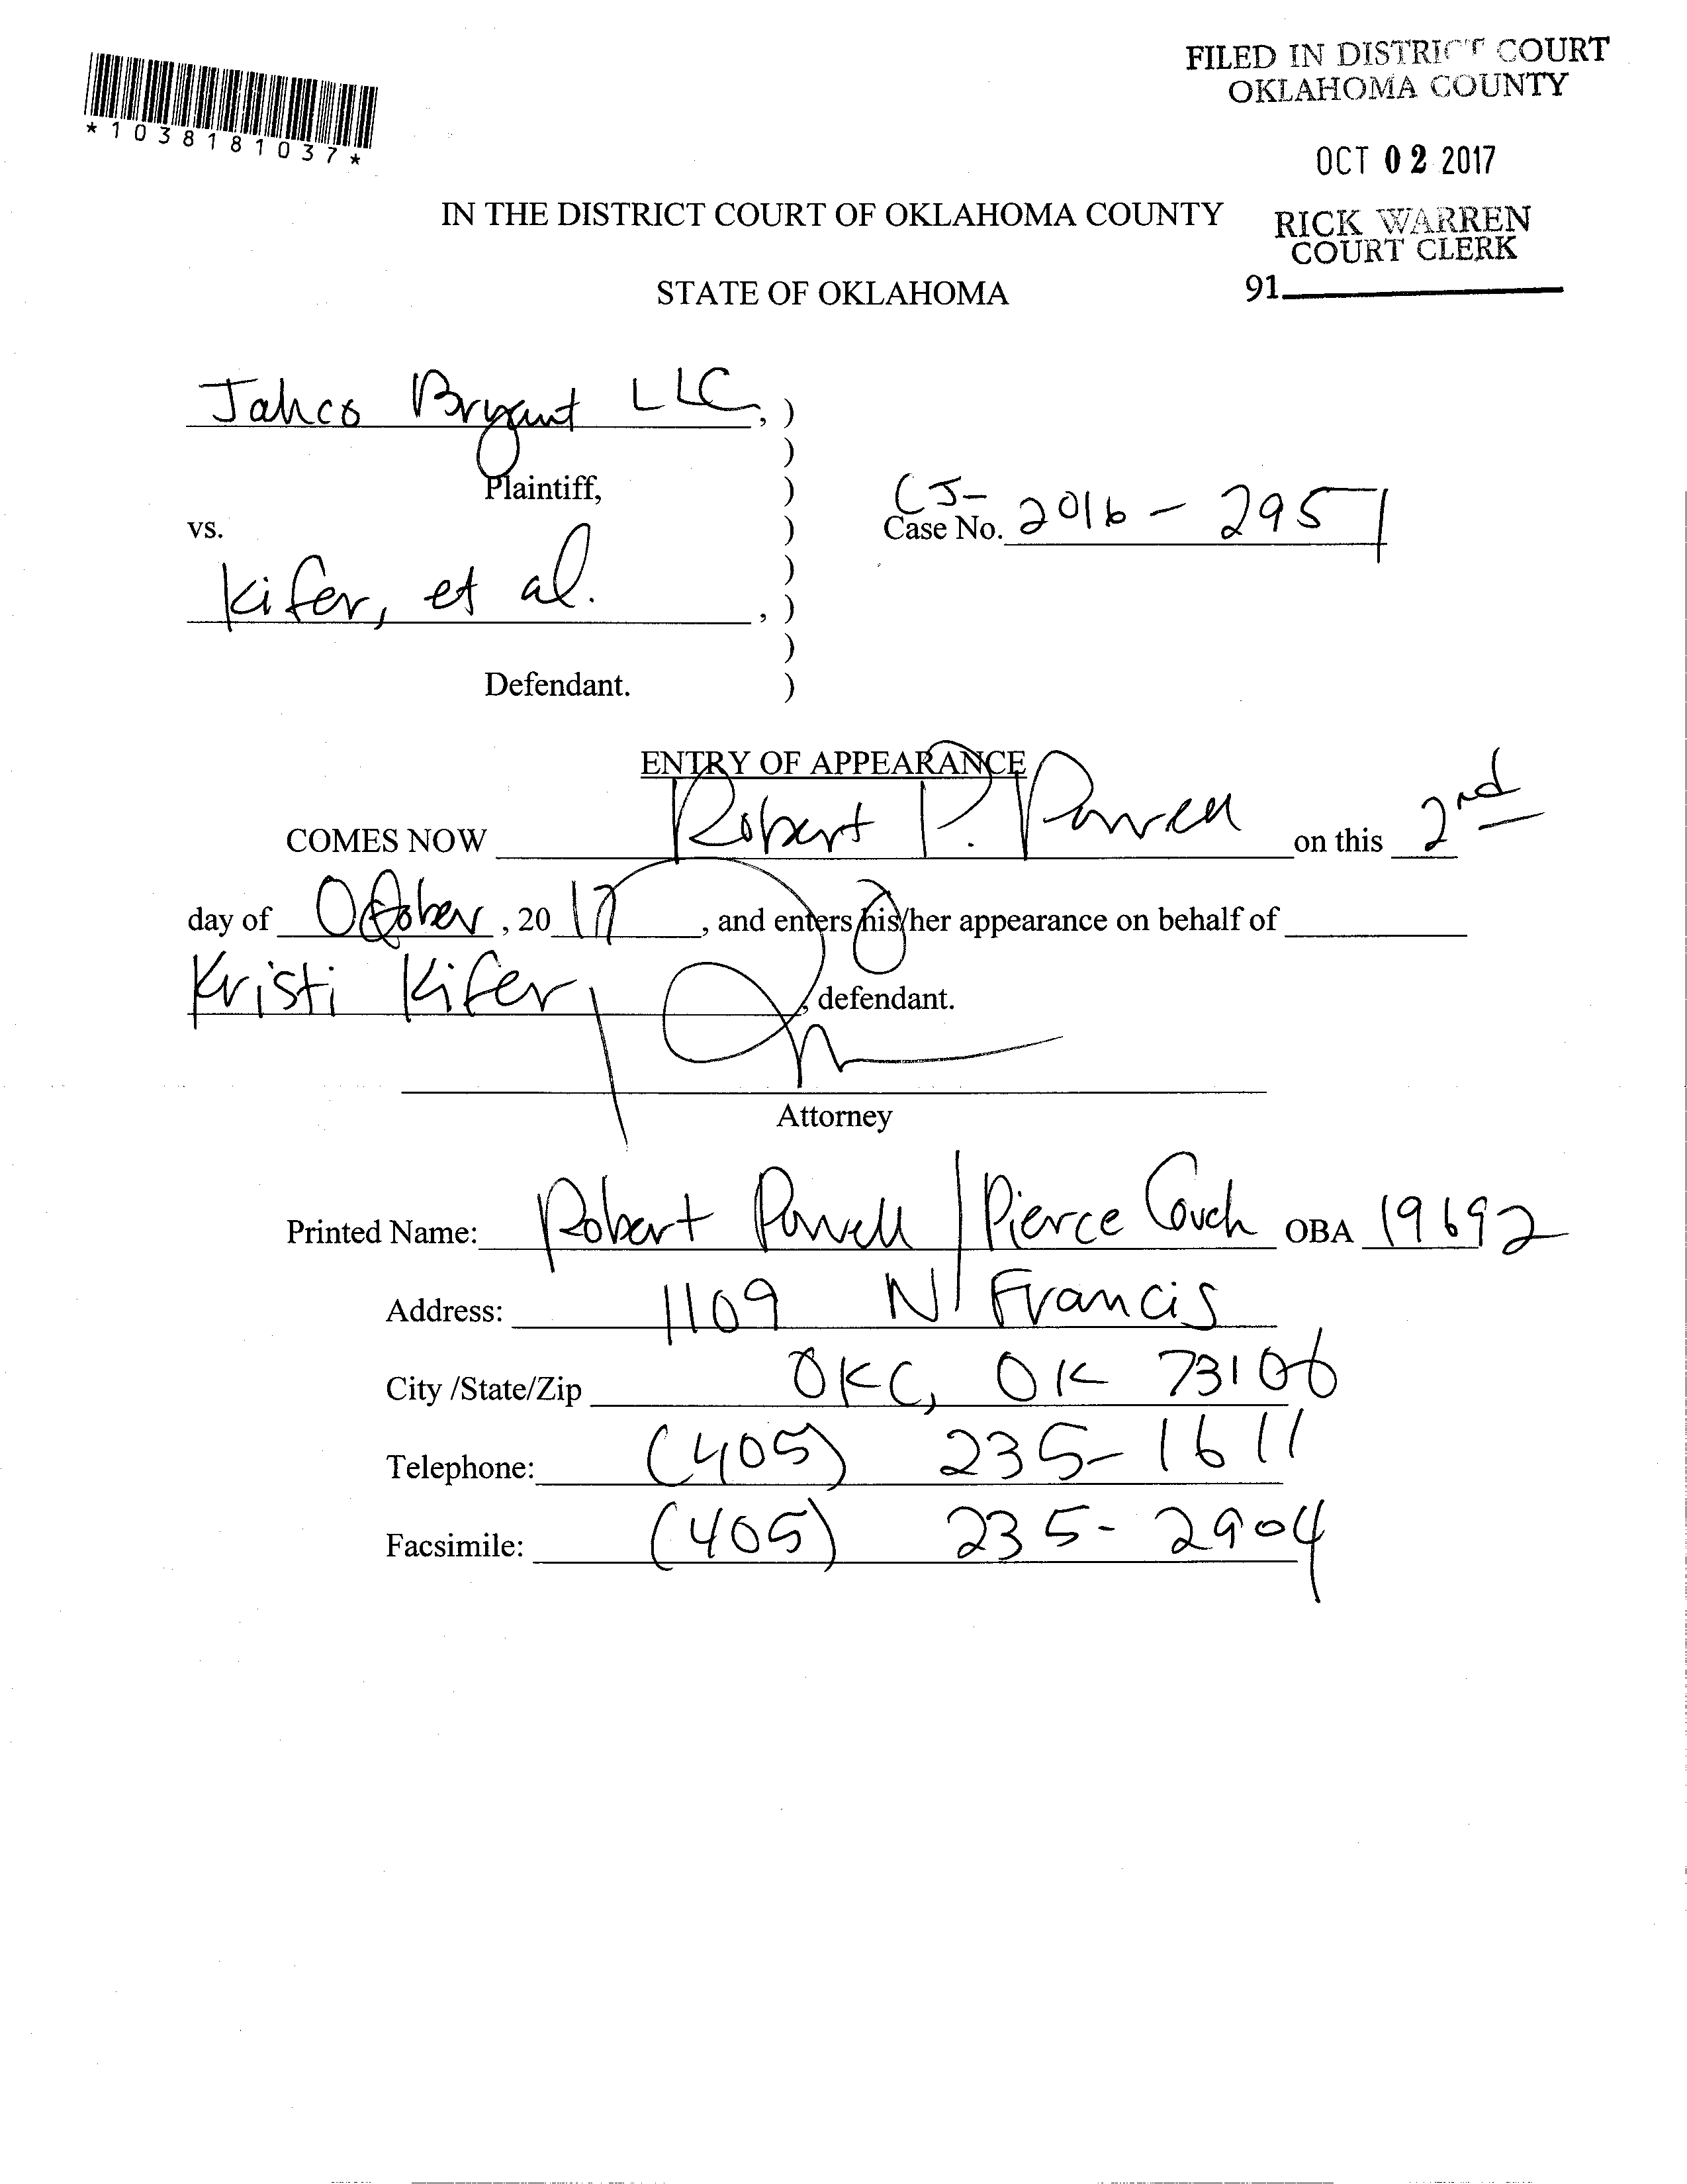 FILED IN DISTRICT COURT
OKLAHOMA COUNTY
*1038181037*
OCT 02 2017
IN THE DISTRICT COURT OF OKLAHOMA COUNTY
RICK WARREN
COURT CLERK
STATE OF OKLAHOMA
91
Jahco Bryant LLC, )
)
Plaintiff, )
CJ-
vs. ) Case No. 2016 - 2951
)
Kifer, et al. , )
)
Defendant. )
ENTRY OF APPEARANCE
COMES NOW Robert P. Powell on this 2nd
day of October, 2017, and enters his/her appearance on behalf of
Kristi Kifer, defendant.
Attorney
Printed Name: Robert Powell / Pierce Couch OBA 19692
Address: 1109 N Francis
City /State/Zip OKC, OK 73106
Telephone: (405) 235-1611
Facsimile: (405) 235-2904